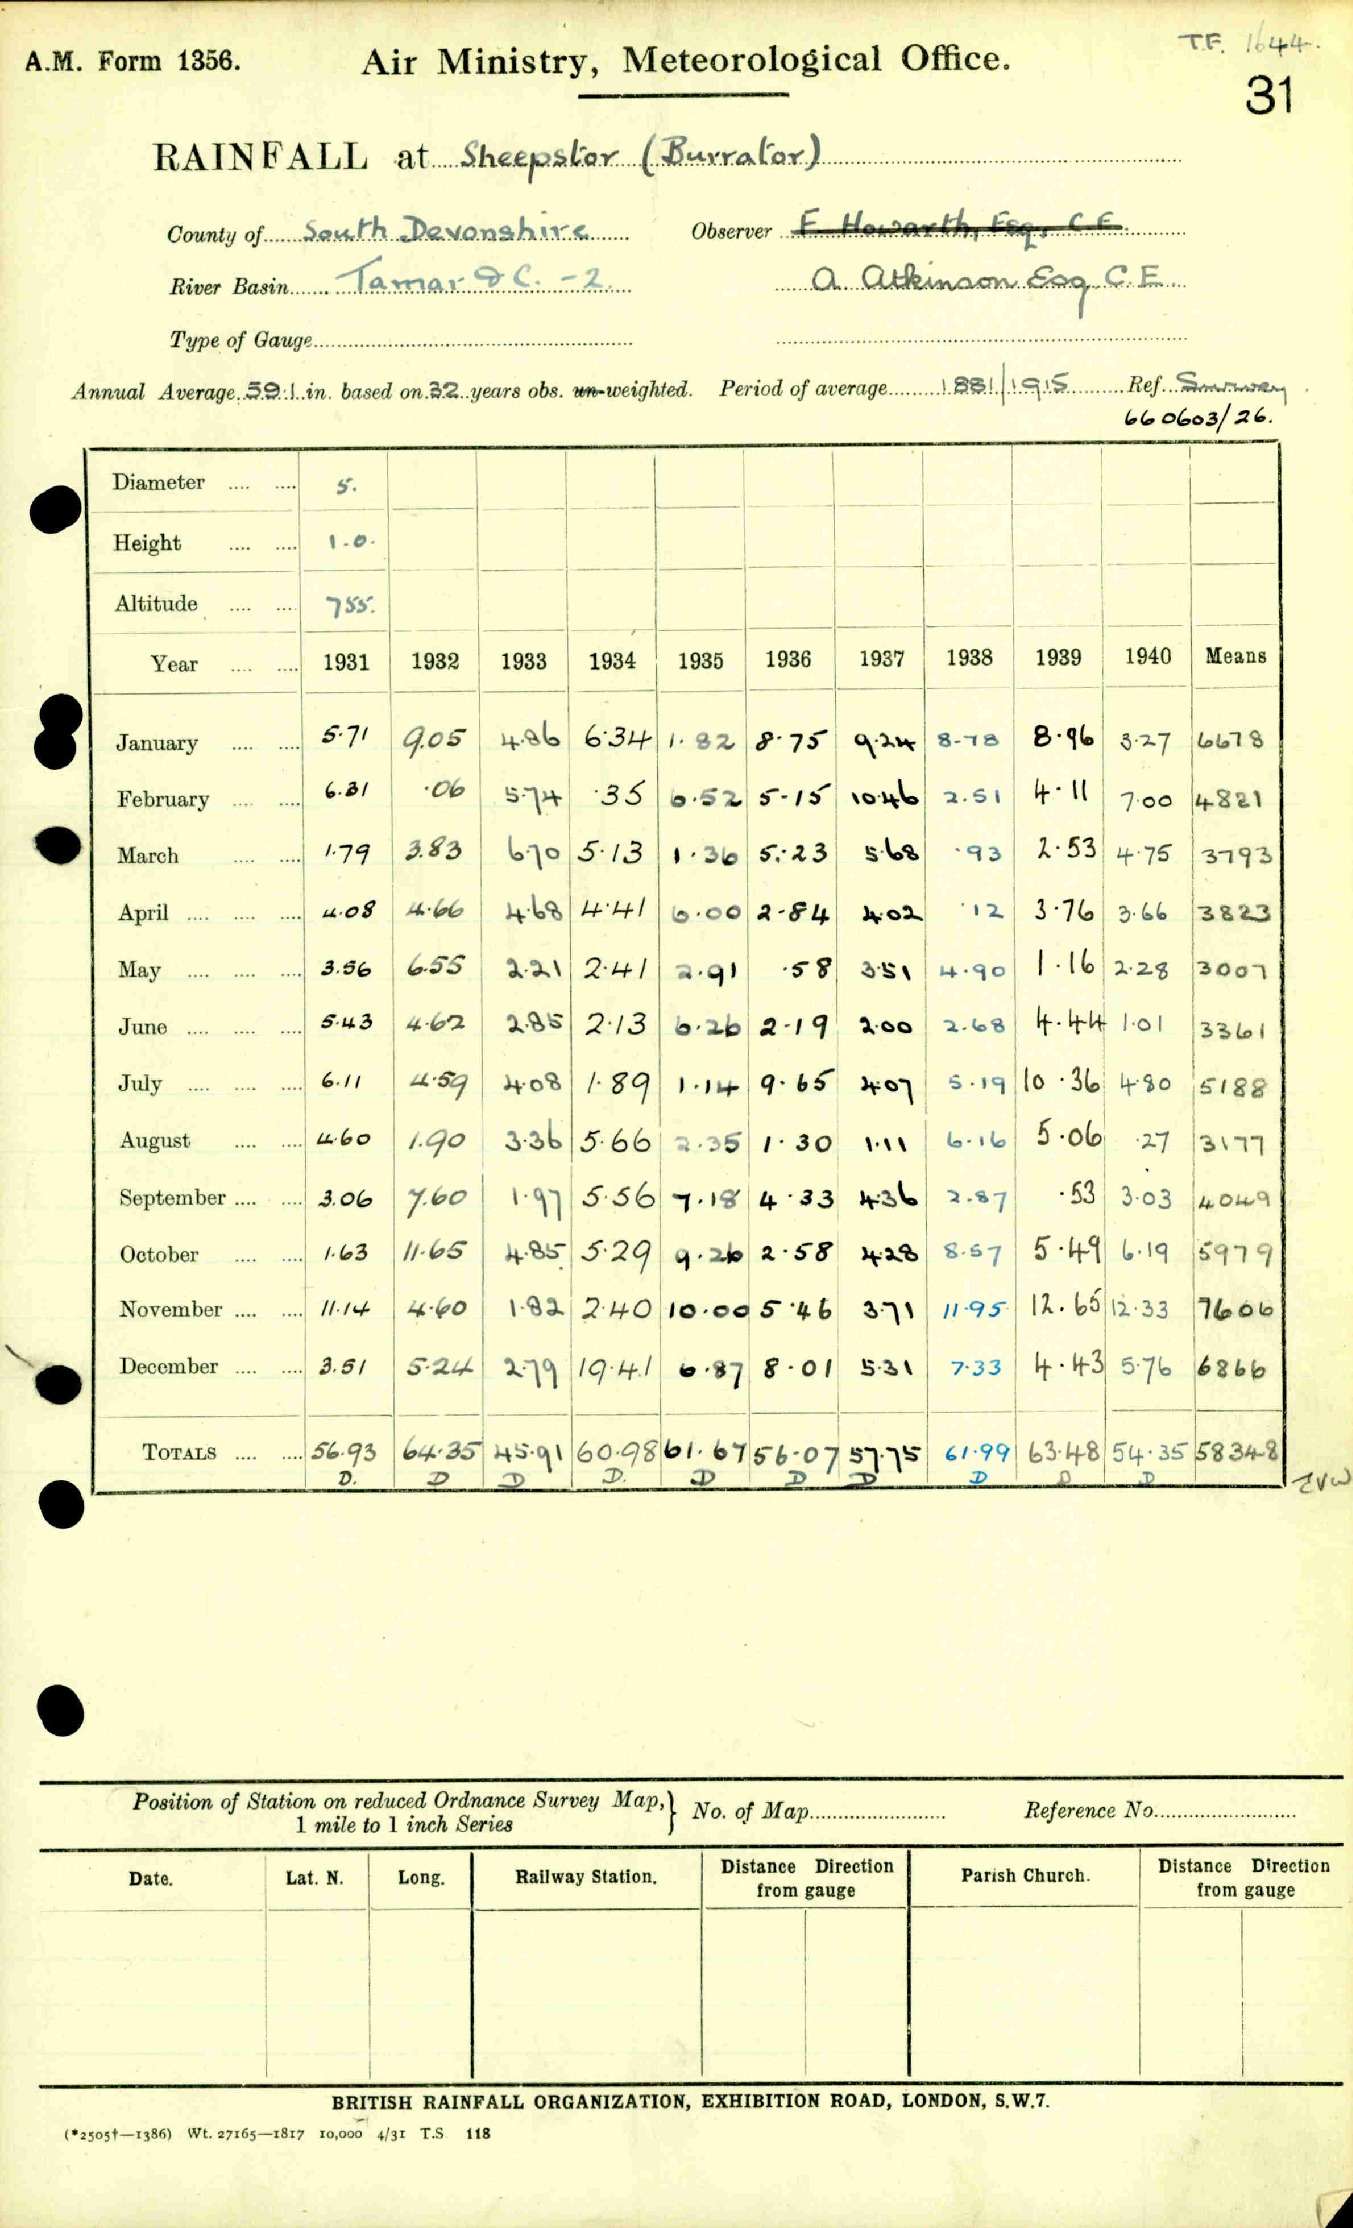 A.M. Form 1356.
Air Ministry, Meteorological Office.
T.F. 1644.
31
RAINFALL at Sheepstor (Burrator)
County of South Devonshire Observer F Howarth, Esq, C.E.
River Basin Tamar &C. -2. A. Atkinson Esq C.E.
Type of Gauge
Annual Average 59.1 in. based on 32 years obs. un-weighted. Period of average 1881/1915 Ref. Survey
660603/26.
Diameter 5.
Height 1.0.
Altitude 755.
Year 1931 1932 1933 1934 1935 1936 1937 1938 1939 1940 Means
January 5.71 9.05 4.86 6.34 1.82 8.75 9.24 8.78 8.96 3.27 6678
February 6.31 .06 5.74 .35 6.52 5.15 10.46 2.51 4.11 7.00 4821
March 1.79 3.83 6.70 5.13 1.36 5.23 5.68 .93 2.53 4.75 3793
April 4.08 4.66 4.68 4.41 6.00 2.84 4.02 .12 3.76 3.66 3823
May 3.56 6.55 2.21 2.41 2.91 .58 3.51 4.90 1.16 2.28 3007
June 5.43 4.62 2.85 2.13 6.26 2.19 2.00 2.68 4.44 1.01 3361
July 6.11 4.59 4.08 1.89 1.14 9.65 4.07 5.19 10.36 4.80 5188
August 4.60 1.90 3.36 5.66 2.35 1.30 1.11 6.16 5.06 .27 3177
September 3.06 7.60 1.97 5.56 7.18 4.33 4.36 2.87 .53 3.03 4049
October 1.63 11.65 4.85 5.29 9.26 2.58 4.28 8.57 5.49 6.19 5979
November 11.14 4.60 1.82 2.40 10.00 5.46 3.71 11.95 12.65 12.33 7606
December 3.51 5.24 2.79 19.41 6.87 8.01 5.31 7.33 4.43 5.76 6866
TOTALS 56.93 64.35 45.91 60.98 61.67 56.07 57.75 61.99 63.48 54.35 58348
D. D D D. D D D D D D
Position of Station on reduced Ordnance Survey Map,
1 mile to 1 inch Series
No. of Map Reference No.
Date. Lat. N. Long. Railway Station. Distance Direction from gauge Parish Church. Distance Direction from gauge
BRITISH RAINFALL ORGANIZATION, EXHIBITION ROAD, LONDON, S.W.7.
(*2505†—1386) Wt. 27165—1817 10,000 4/31 T.S 118